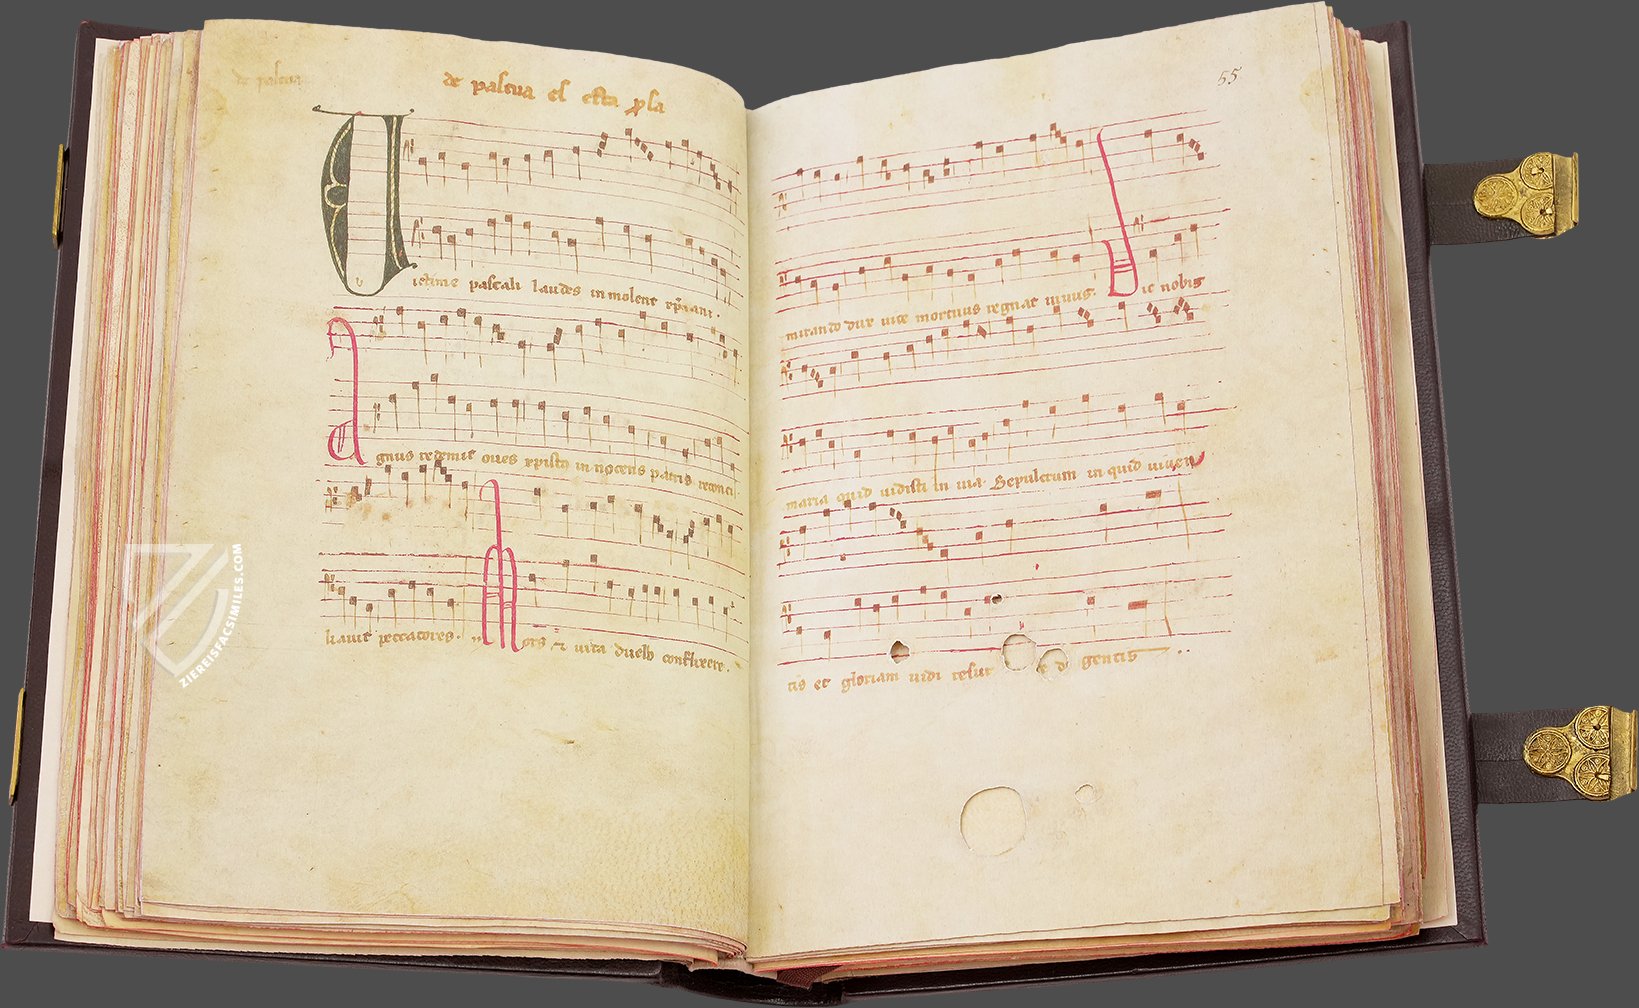 de pascua
de pascua es esta p̱sa
Victime pascali laudes inmolent xp̄iani.
Agnus redemit oves xpisto innocens patris reconci
liauit peccatores.
Mors et uita duello conflixere.
55
mirando dux uite mortuus regnat uiuus. Dic nobis
maria quid uidisti in uia. Sepulcrum in quid uiuen
tis et gloriam uidi resur gentis
ZIEREISFACSIMILES.COM